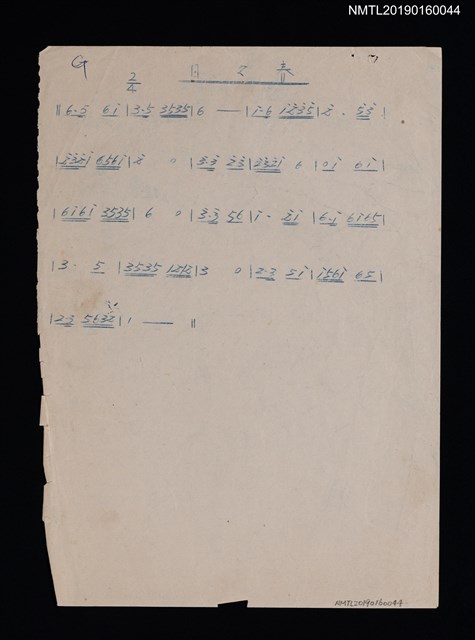 NMTL20190160044
G 2/4 日之春
‖ 6·5 6i | 3·5 3535 | 6 — | i·6 i̇2̇3̇5̇ | 2̇ · 5̇3̇ |
| 2̇3̇2̇i 6561 | 2̇ 0 | 3̇·3̇ 2̇3̇ | 2̇3̇2̇i 6 | 0 i 6i |
| 6i6i 3535 | 6 0 | 3·3 56 | i· 2̇i | 6·i 6i65 |
| 3· 5 | 3535 1212 | 3 0 | 2·3 5i | i561 65 |
| 2·3 5632 | 1 — ‖
NMTL20190160044